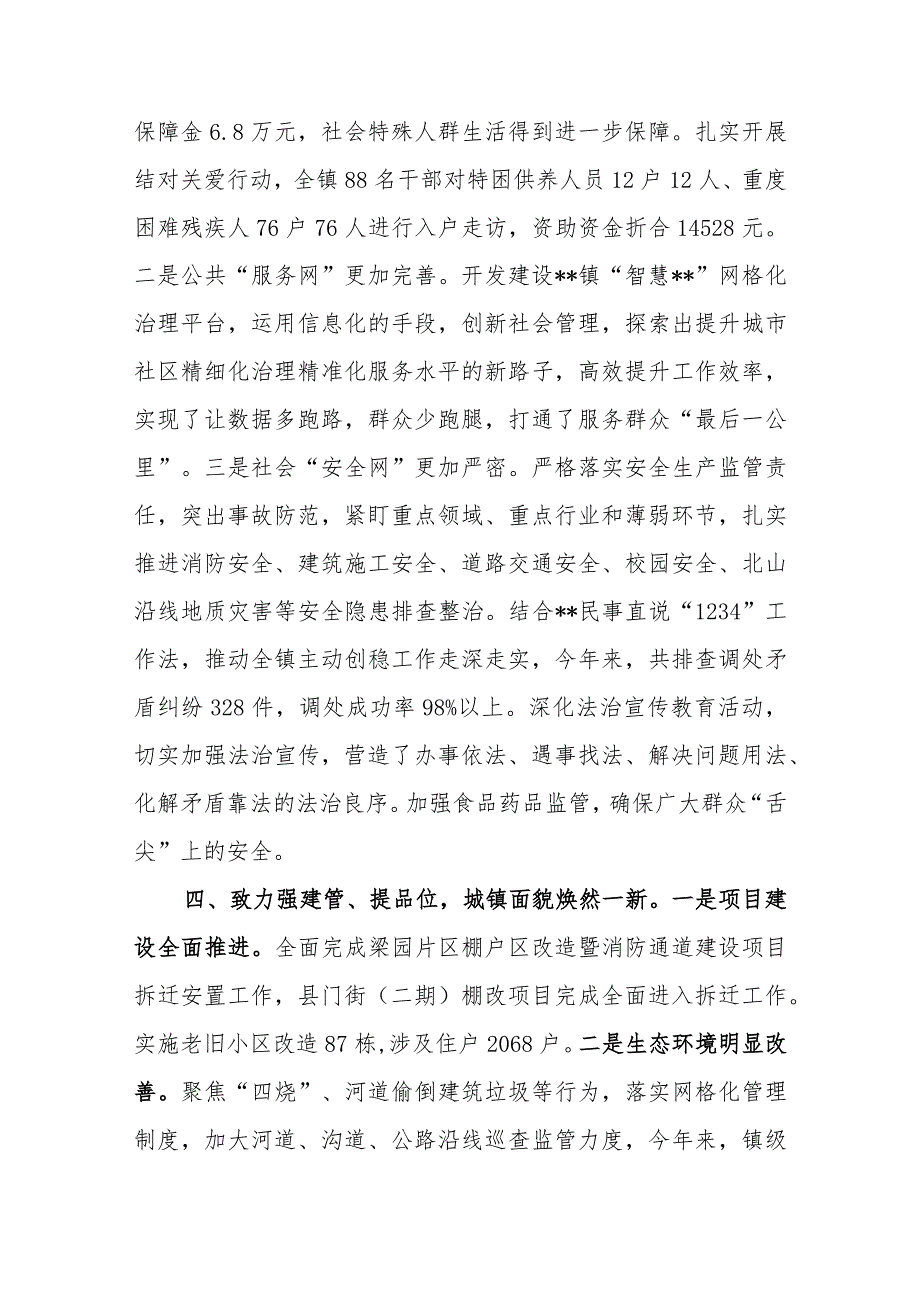 保障金6.8万元，社会特殊人群生活得到进一步保障。扎实开展
结对关爱行动，全镇88名干部对特困供养人员12户12人、重度
困难残疾人76户76人进行入户走访，资助资金折合14528元。
二是公共“服务网”更加完善。开发建设**镇“智慧**”网格化
治理平台，运用信息化的手段，创新社会管理，探索出提升城市
社区精细化治理精准化服务水平的新路子，高效提升工作效率，
实现了让数据多跑路，群众少跑腿，打通了服务群众“最后一公
里”。三是社会“安全网”更加严密。严格落实安全生产监管责
任，突出事故防范，紧盯重点领域、重点行业和薄弱环节，扎实
推进消防安全、建筑施工安全、道路交通安全、校园安全、北山
沿线地质灾害等安全隐患排查整治。结合**民事直说“1234”工
作法，推动全镇主动创稳工作走深走实，今年来，共排查调处矛
盾纠纷328件，调处成功率98%以上。深化法治宣传教育活动，
切实加强法治宣传，营造了办事依法、遇事找法、解决问题用法、
化解矛盾靠法的法治良序。加强食品药品监管，确保广大群众“舌
尖”上的安全。
四、致力强建管、提品位，城镇面貌焕然一新。一是项目建
设全面推进。全面完成梁园片区棚户区改造暨消防通道建设项目
拆迁安置工作，县门街（二期）棚改项目完成全面进入拆迁工作。
实施老旧小区改造87栋,涉及住户2068户。二是生态环境明显改
善。聚焦“四烧”、河道偷倒建筑垃圾等行为，落实网格化管理
制度，加大河道、沟道、公路沿线巡查监管力度，今年来，镇级